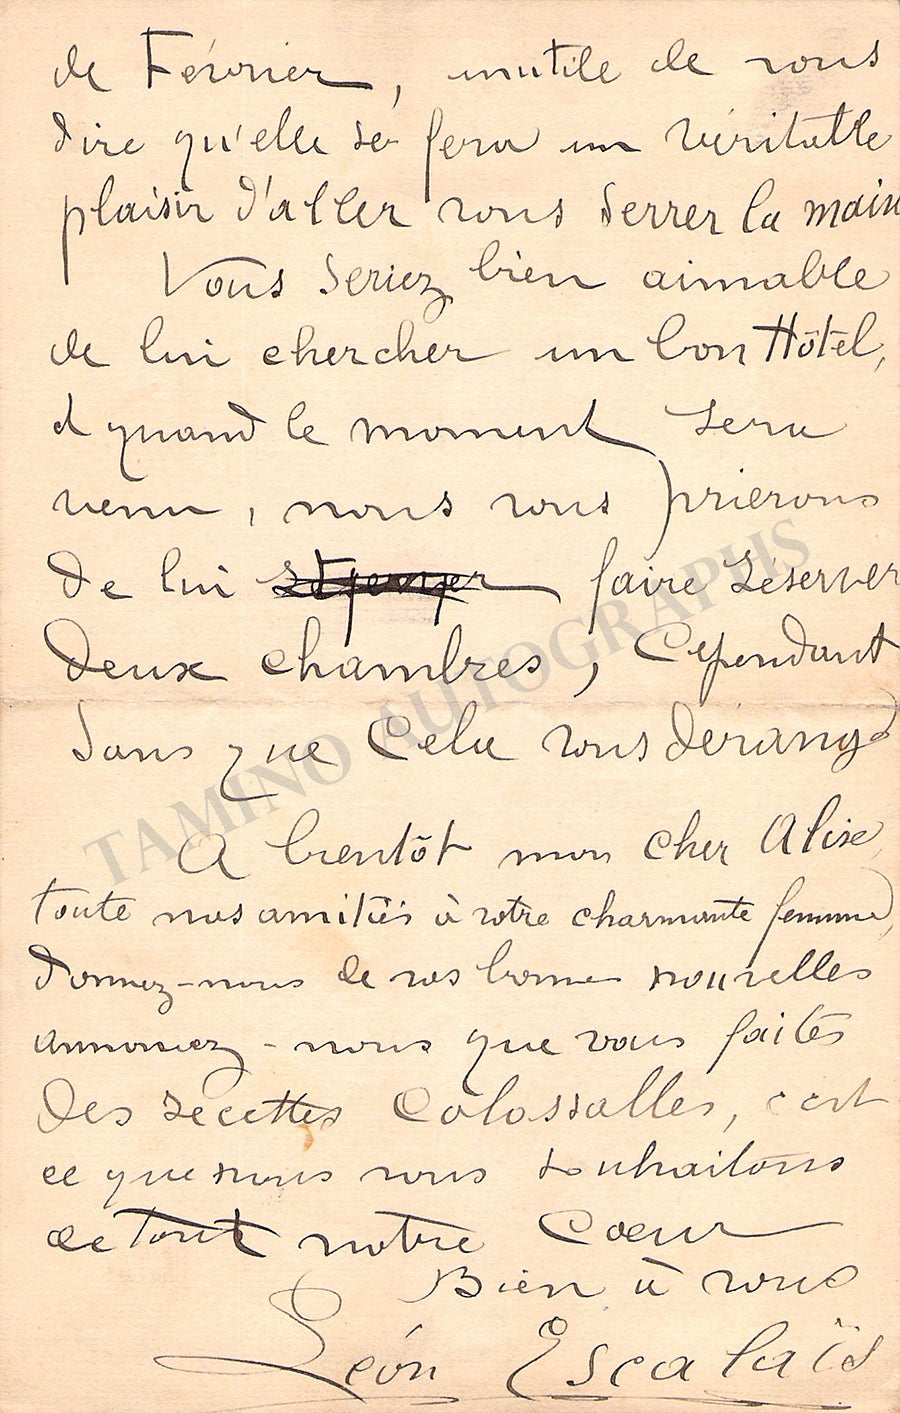 de Février, inutile de vous
dire qu'elle se fera un véritable
plaisir d'aller vous serrer la main
Vous seriez bien aimable
de lui chercher un bon Hôtel,
et quand le moment sera
venu, nous vous prierons
de lui faire réserver
deux chambres, Cependant
sans que Cela vous dérange
A bientôt mon cher Alise,
toute nos amitiés à votre charmante femme,
donnez-nous de vos bonnes nouvelles
annoncez-nous que vous faites
des recettes Colossalles, c'est
ce que nous vous souhaitons
de tout notre Coeur
Bien à vous
Léon Escalaïs
TAMINO AUTOGRAPHS